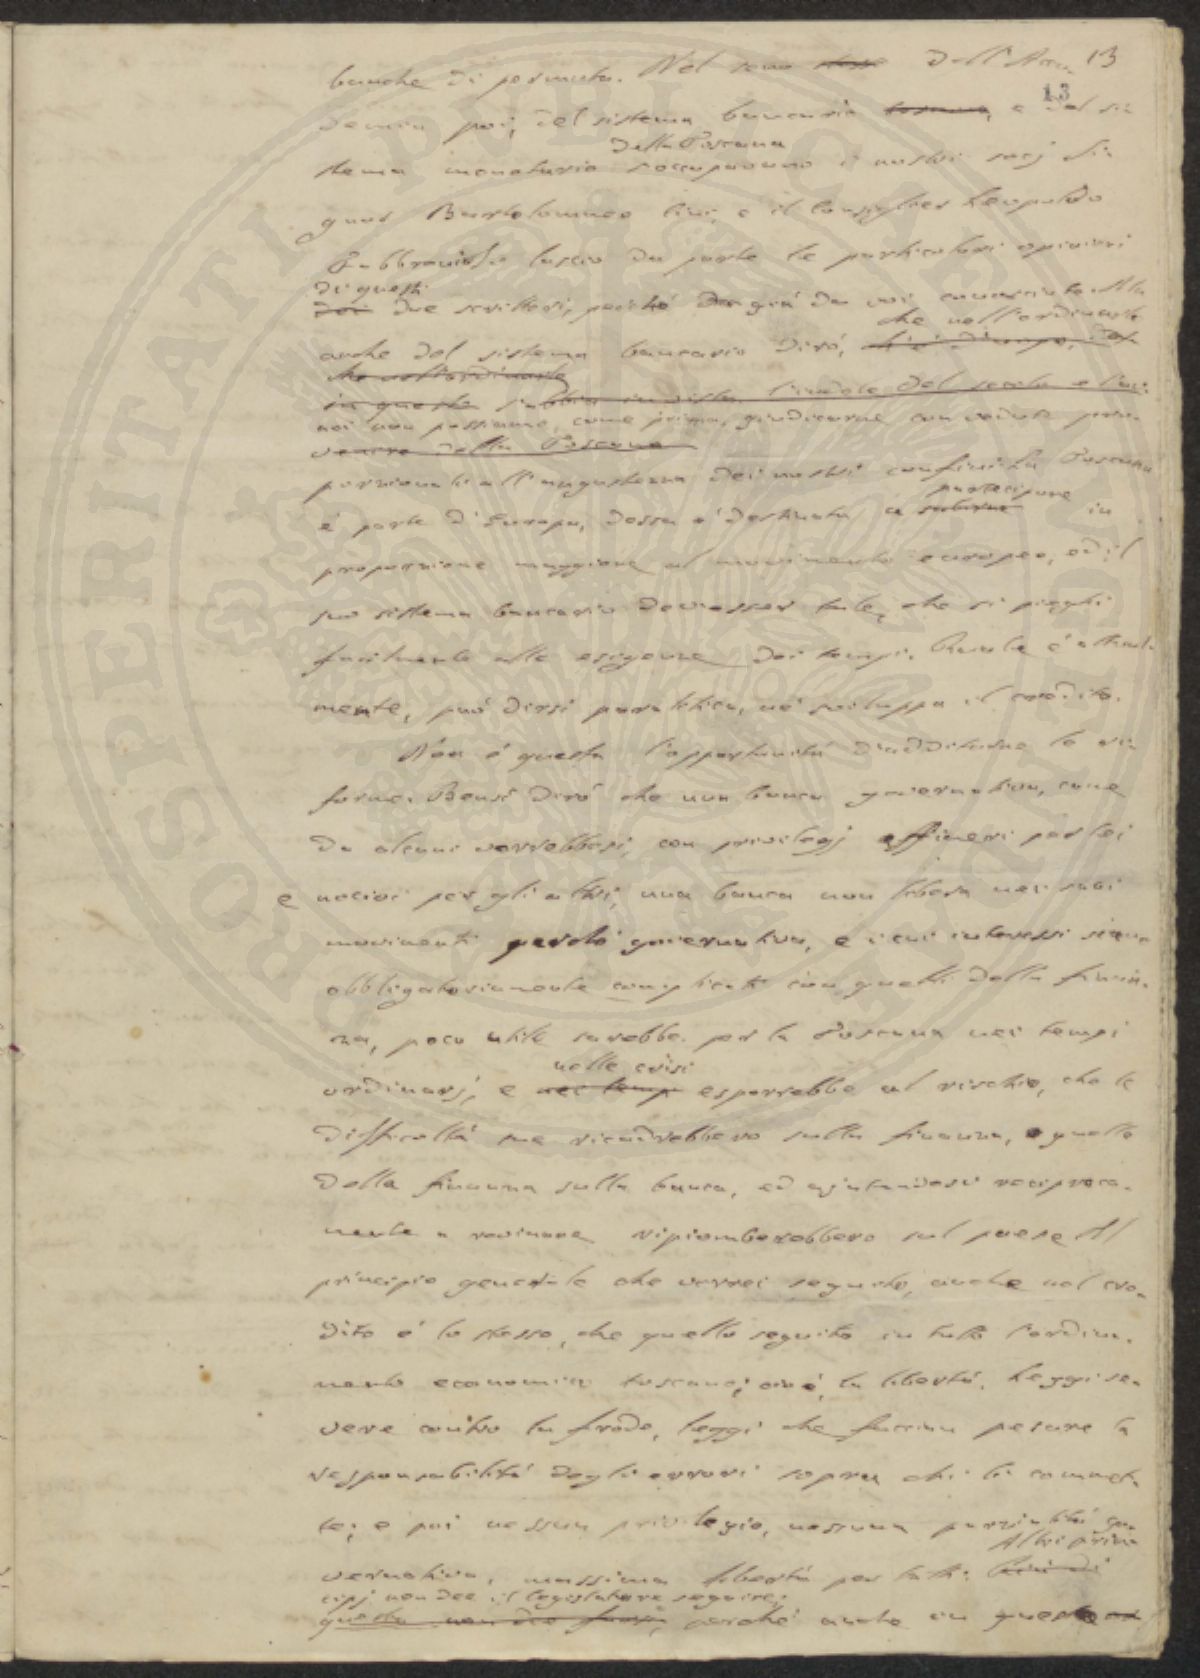 13
13
banche di permuta. Nel seno stesso dell'Acca-
demia poi, del sistema bancario toscano, e del si-
della Toscana
stema monetario s'occupavano i nostri socj Si-
gnor Bartolommeo Cini, e il Consiglier Leopoldo
Fabbroni. Io lascio da parte le particolari opinioni
di questi
dei due scrittori, perché già da voi conosciute. Ma
che nell'ordinarlo
anche del sistema bancario dirò,
che nell'ordinarlo
in questo l'indole del secolo e l'av-
noi non possiamo, come prima, giudicarne con vedute pro-
venire della Toscana
porzionate all'angustezza dei nostri confini. La Toscana
partecipare
è parte d'Europa, dessa è destinata a in
proporzione maggiore al movimento europeo, ed il
suo sistema bancario dev'esser tale, che si pieghi
facilmente alle esigenze dei tempi. Quale è attual-
mente, può dirsi paralitico, né sviluppa il credito.
Non è questa l'opportunità d'additarne le ri-
forme. Bensì dirò che una banca governativa, come
da alcuni vorrebbesi, con privilegj effimeri per lei
e nocivi per gli altri, una banca non libera nei suoi
movimenti perché governativa, e i cui interessi sieno
obbligatoriamente complicati con quelli della finan-
za, poco utile sarebbe per la Toscana nei tempi
nelle crisi
ordinarj, e nei tempi esporrebbe al rischio, che le
difficoltà sue ricadrebbero sulla finanza, e quelle
della finanza sulla banca, ed ajutandosi reciproca-
mente a rovinare ripiomberebbero sul paese. Il
principio generale che vorrei seguito, anche nel cre-
dito è lo stesso, che quello seguito in tutto l'ordina-
mento economico toscano; cioè, la libertà. Leggi se-
vere contro la frode, leggi che faccian pesare la
responsabilità degli errori sopra chi li commet-
te; e poi nessun privilegio, nessuna parzialità go-
Altri prin-
vernativa, massima libertà per tutti.
cipj non dee il legislatore seguire;
questo non dee farsi, perché anche in queste